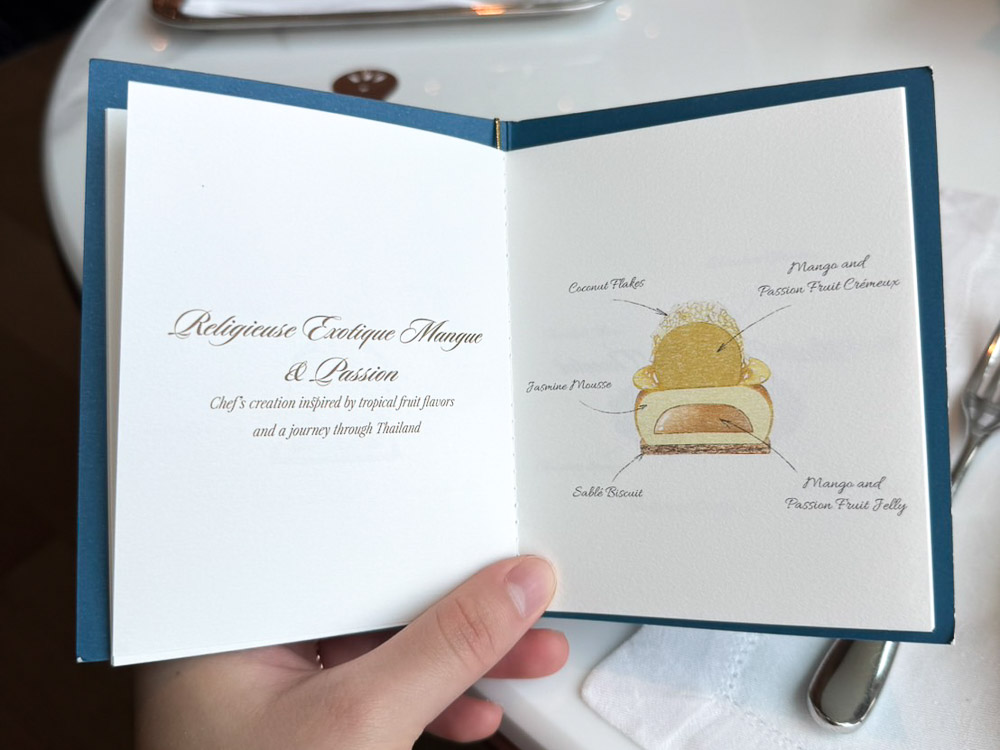 Religieuse Exotique Mangue
& Passion
Chef's creation inspired by tropical fruit flavors
and a journey through Thailand
Coconut Flakes
Mango and
Passion Fruit Crémeux
Jasmine Mousse
Sablé Biscuit
Mango and
Passion Fruit Jelly